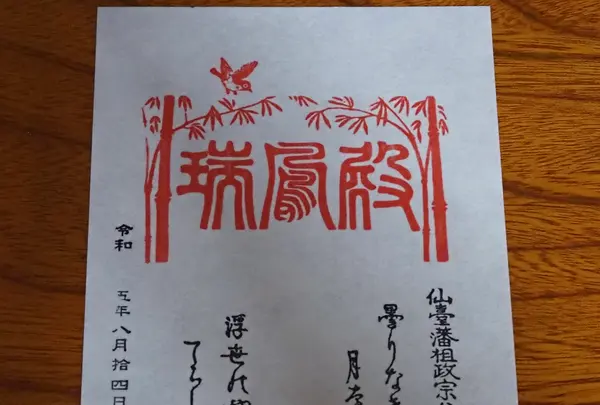 瑞鳳殿
仙臺藩祖政宗
曇りなき
月を
浮世の
てらし
令和 五年八月拾四日